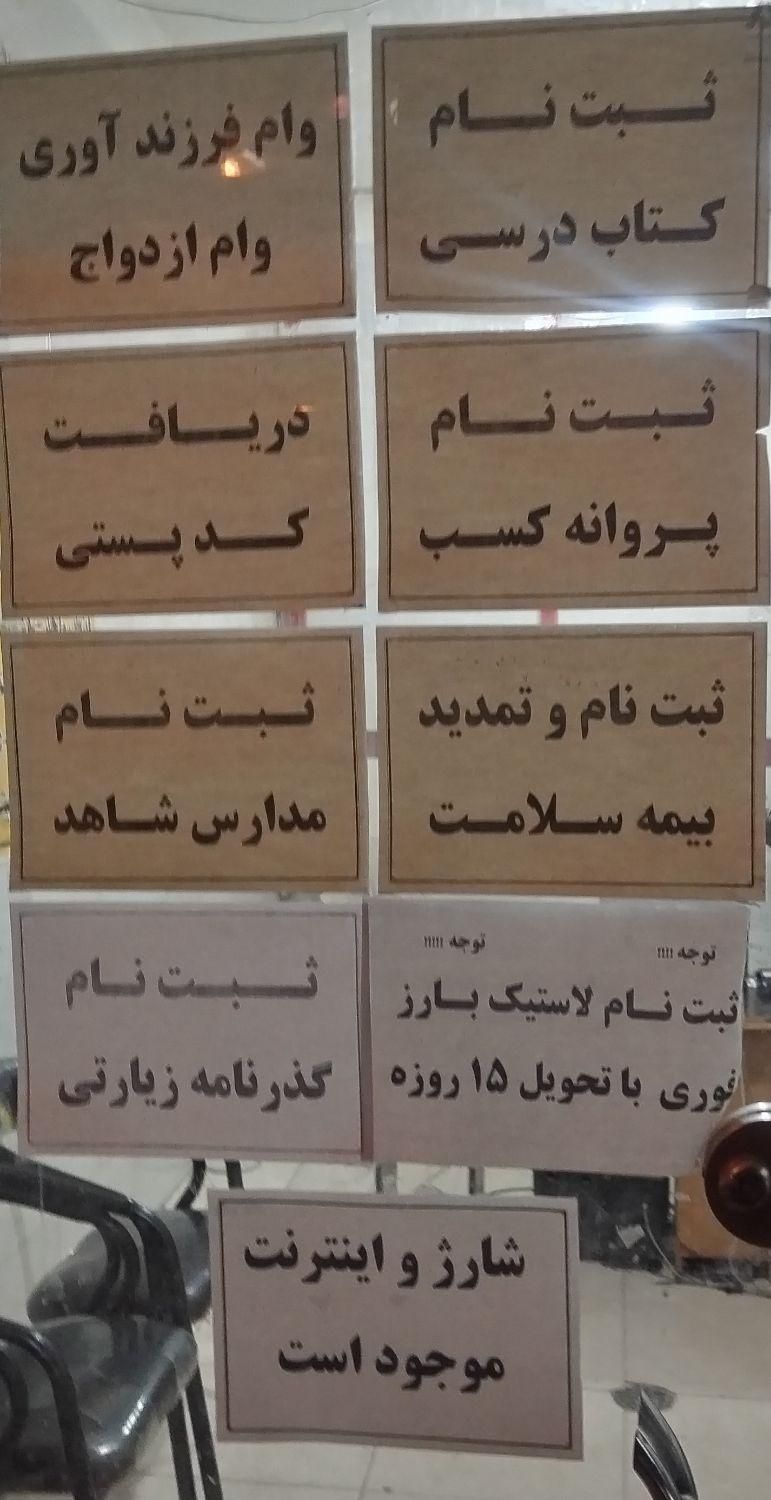 ثبت نام
کتاب درسی
وام فرزند آوری
وام ازدواج
ثبت نام
پروانه کسب
دریافت
کد پستی
ثبت نام و تمدید
بیمه سلامت
ثبت نام
مدارس شاهد
توجه !!!! توجه !!!!!
ثبت نام لاستیک بارز
فوری با تحویل ۱۵ روزه
ثبت نام
گذرنامه زیارتی
شارژ و اینترنت
موجود است